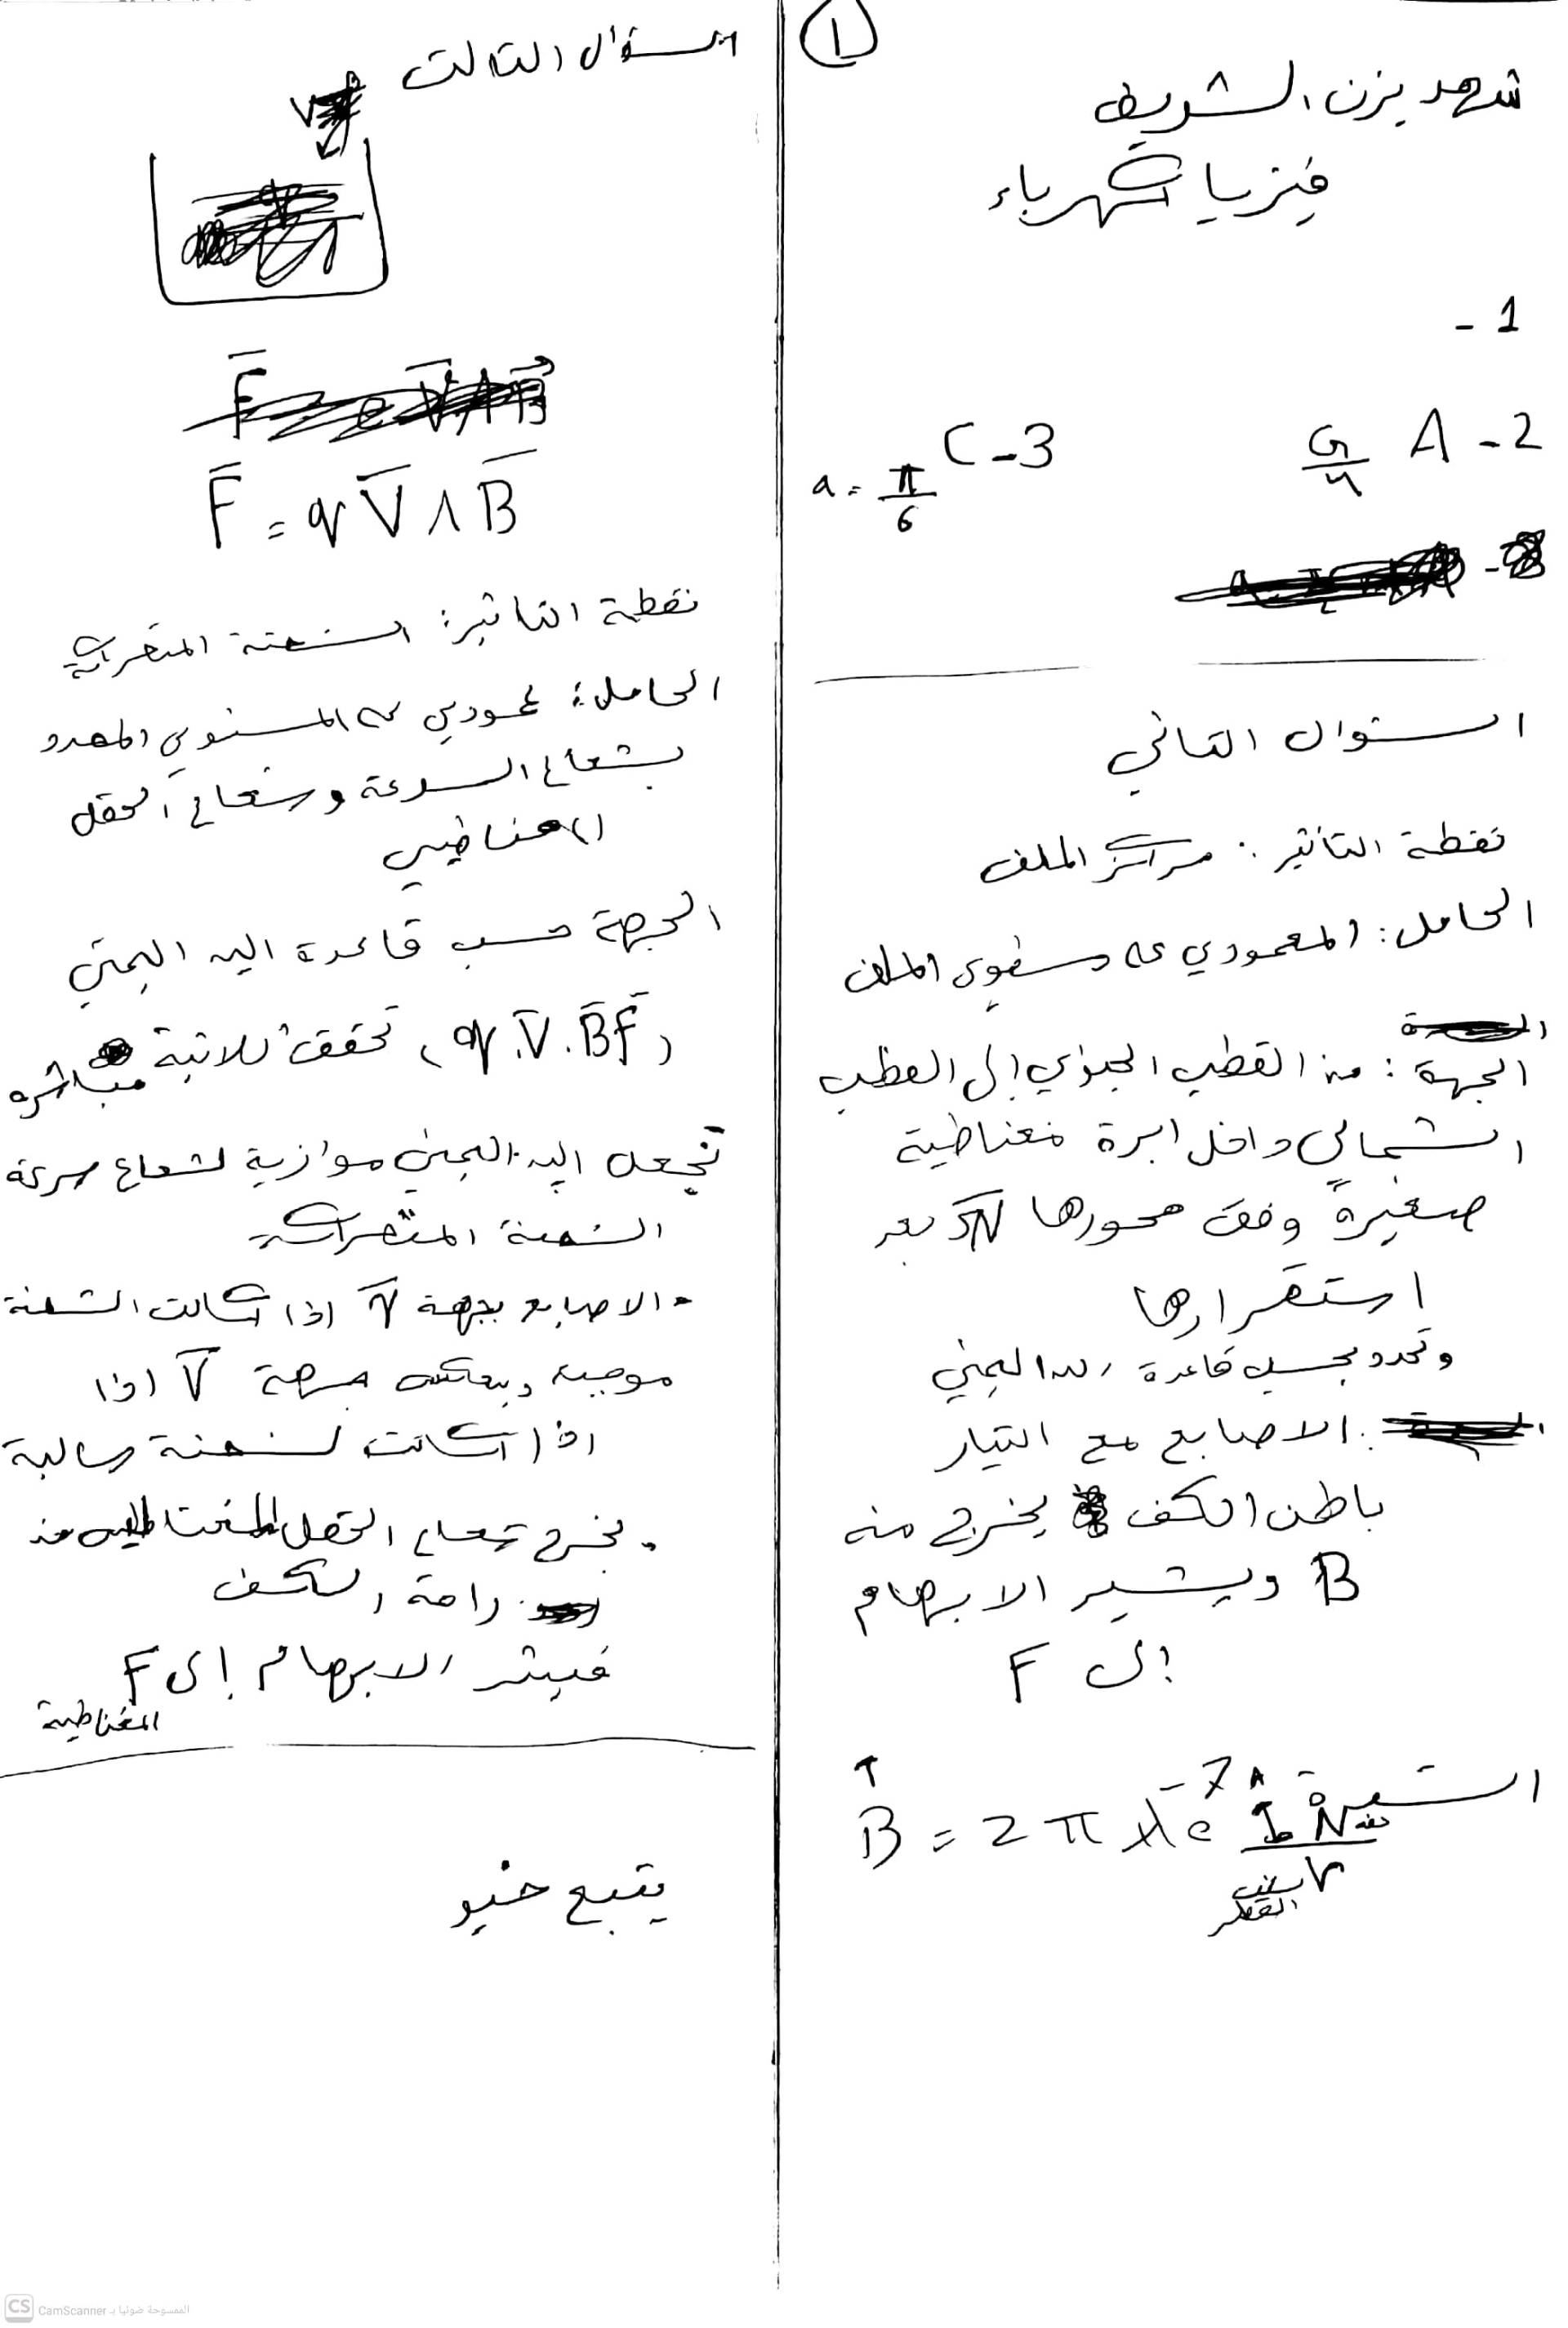 1
شهد يزن الشريف
فيزياء كهرباء
1 -
2 - A G/4
3 - C a = π/6
السئوال الثاني
نقطة التاثير : مركز الملف
الحامل : العمودي على مستوي الملف
الجهة : من القطب الجنوبي إلى القطب
الشمالي داخل ابرة مغناطية
صغيرة وفق محورها بعد
استقرارها
وتحدد بحسب قاعدة اليد اليمنى
الاصابع مع التيار
باطن الكف يخرج منه
B ويشير الابهام
إلى F
الشدة
B = 2 π × 10⁻⁷ N I / r
نصف
القطر
السؤال الثالث
V
F = q V Λ B
نقطة التاثير : الشحنة المتحركة
الحامل : عمودي على المستوي المحدد
بشعاع السرعة وشعاع الحقل
المغناطيسي
الجهة حسب قاعدة اليد اليمنى
تحقق ثلاثية مباشرة (q. V. B F)
نجعل اليد اليمنى موازية لشعاع سرعة
الشحنة المتحركة
- الاصابع بجهة V اذا كانت الشحنة
موجبة وبعكس جهة V اذا
اذا كانت لشحنة سالبة
- يخرج شعاع الحقل المغناطيسي من
راحة الكف
فيشر الابهام إلى F
المغناطية
يتبع
CS CamScanner الممسوحة ضوئيا بـ